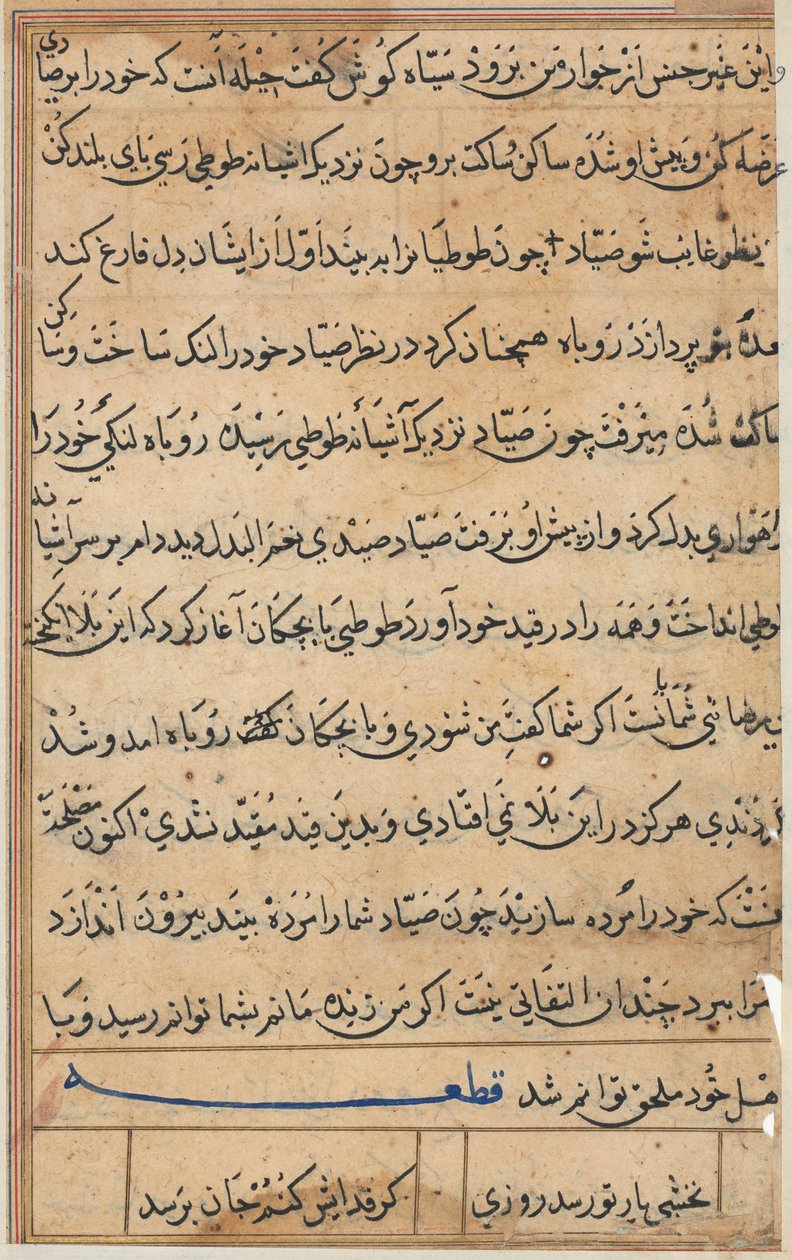 واین غیر جنس از جوار من برود سیاه کوش کفت حیله آنست که خود را بر صیادی
عرضه کن و پیش او شده ساکن ساکت برو چون نزدیک اشیانه طوطی رسی بای بلند کن
نظر غایب شو صیاد چون طوطیانرا به بیند اول از ایشان دل فارغ کند
بتو پردازد روباه همچنان کرد در نظر صیاد خود را لنک ساخت و ساکن
ساکت شده میرفت چون صیاد نزدیک آشیانه طوطی رسیده روباه لنکی خود را
راهواری بدل کرد و از پیش او برفت صیاد صیدی نعم البدل دید دام بر سر آشیانه
طوطی انداخت و همه را در قید خود آورد طوطی با بچکان آغاز کرد که این بلا انکیخته
شما نست اکر شما کفت من شنودی و با بچکان روباه امد و شد
هرکز در این بلا نمی افتادی و بدین قید مقید نشدی اکنون مصلحت
که خود را مرده سازید چون صیاد شما را مرده بیند بیرون اندازد
مرا ببرد چندان التفاتی نیست اکر من زنده مانم بشما توانم رسید و با
هل خود ملحق توانم شد قطعه
نخشبی یار تو رسد روزی کر فدایش کنم جان برسد